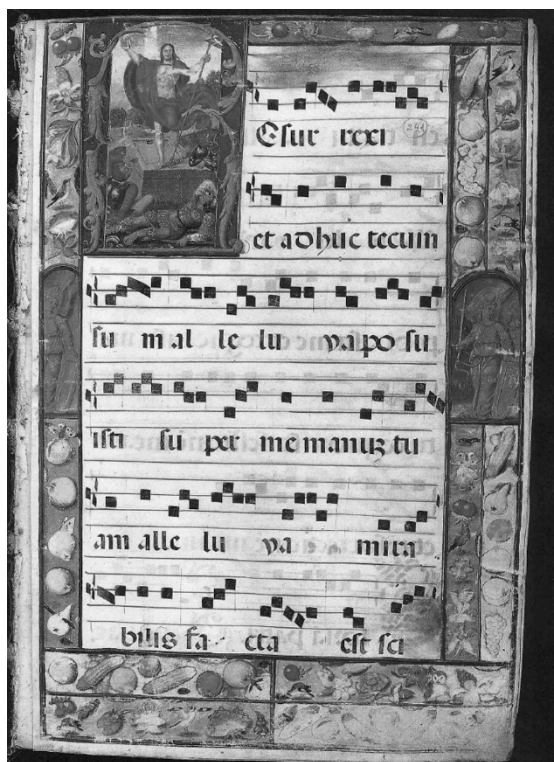 Esur rexi
et adhuc tecum
su m al le lu ya po su
isti su per me manuʒ tu
am alle lu ya mira
bilis fa cta est sci